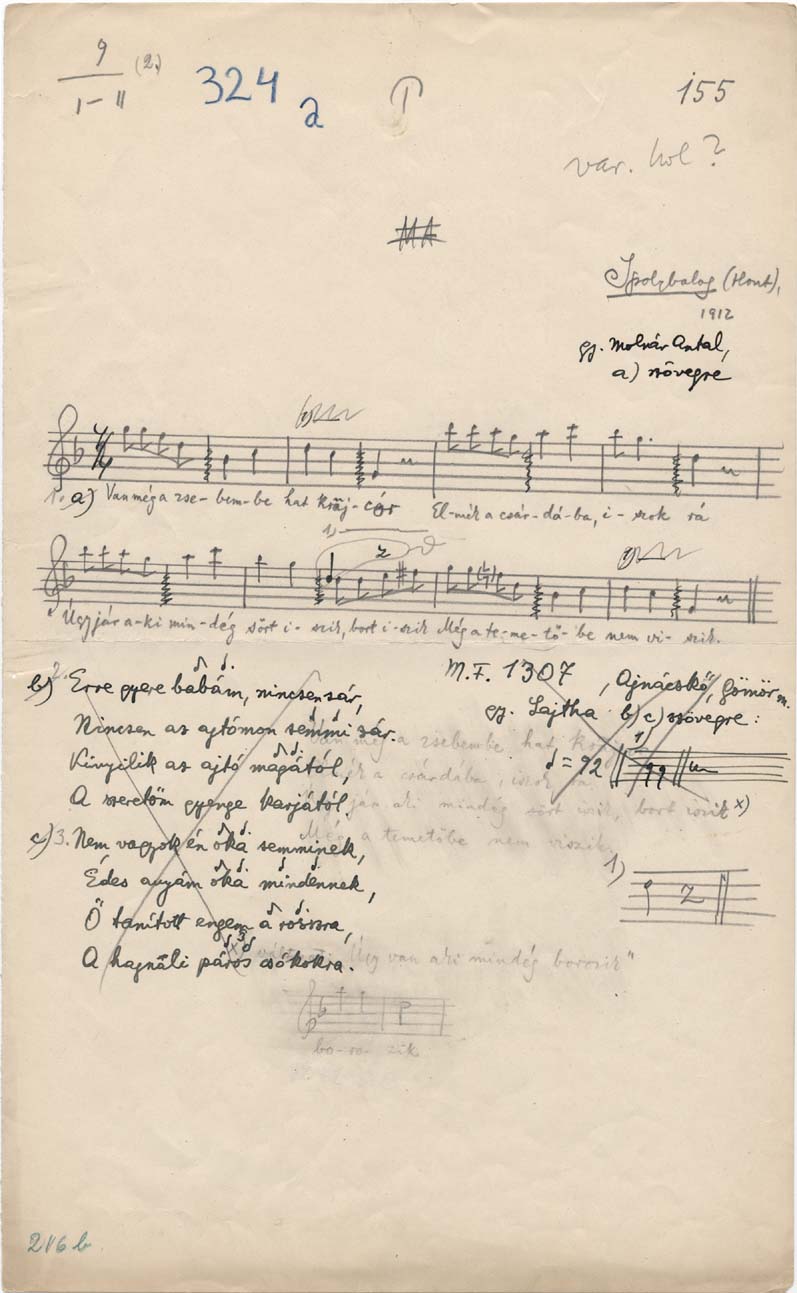 9 (2.)
I-II
324 a
155
var. hol?
MA
Ipolybalog (Hont),
1912
gj. Molnár Antal,
a) szövegre
1. a) Van még a zse-bem-be hat kraj-cár El-mék a csár-dá-ba, i-szok rá
1)
Úgy jár a-ki min-dég sört i-szik, bort i-szik Még a te-me-tő-be nem vi-szik.
M.F. 1307, Ajnácskő, Gömör m.
gj. Lajtha b) c) szövegre:
b) 2. Erre gyere babám, nincsen sár,
Nincsen az ajtómon semmi zár.
Kinyilik az ajtó magától,
A szeretőm gyenge karjától.
1)
= 92
c) 3. Nem vagyok én oka semminek,
Édes anyám oka mindennek,
Ő tanított engem a rosszra,
A hajnali páros csókokra.
Van még a zsebembe hat
a csárdába, iszok
aki mindég sört iszik, bort iszik x)
Még a temetőbe nem viszik.
1)
Úgy van aki mindég borozik"
bo-ro-zik
216 b